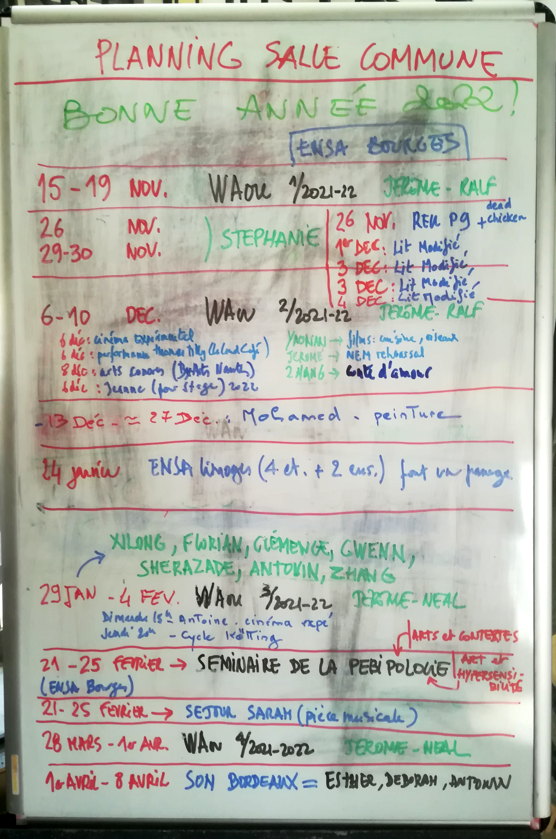 PLANNING SALLE COMMUNE
BONNE ANNÉE 2022!
ENSA BOURGES
15-19 NOV. WAOU 1/2021-22 JEROME-RALF
26 NOV.
29-30 NOV.
STEPHANIE
26 NOV. REU P9 + dead chicken
1er DEC: Lit Modifié,
3 DEC: Lit Modifié,
3 DEC: Lit Modifié
4 DEC: Lit Modifié
6-10 DEC. WAOU 2/2021-22 JEROME-RALF
6 déc: cinéma expérimental
6 déc: performance Thomas
8 déc: arts sonores
6 déc: Jeanne (pour stage) 2022
YAONAN → films: cuisine, oiseaux
JEROME → NEM rehearsal
ZHANG → d'amour
-13 Déc - ≈ 27 Déc: Mohamed - peinture
24 janvier ENSA Limoges (4 et. + 2 ens.) font un passage
XILONG, FLORIAN, CLÉMENCE, GWENN,
SHERAZADE, ANTONIN, ZHANG
29 JAN - 4 FEV. WAOU 3/2021-22 JEROME-NEAL
Dimanche 15h Antoine. cinéma expé
Jeudi 20h - Cycle
ARTS et CONTEXTES
21-25 FÉVRIER → SEMINAIRE DE LA PEBIPOLOGIE
(ENSA Bourges)
ART et
HYPERSENSI-
BILITÉ
21-25 FÉVRIER → SEJOUR SARAH (pièce musicale)
28 MARS - 1er AVR. WAOU 4/2021-2022 JEROME-NEAL
1er AVRIL - 8 AVRIL SON BORDEAUX = ESTHER, DEBORAH, ANTONIN